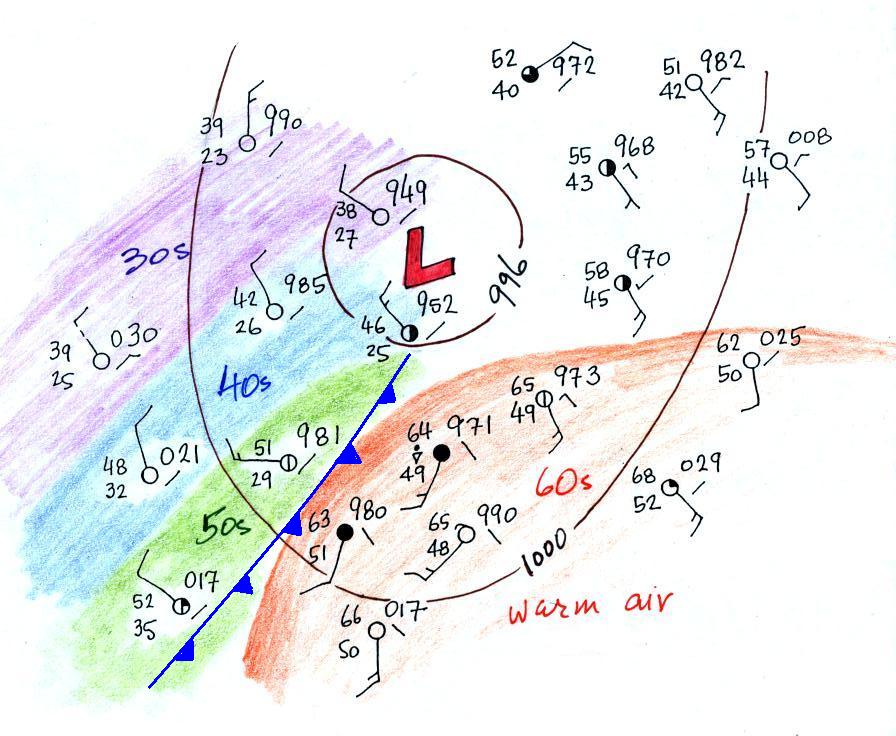 52 972
40
51 982
42
39 990
23
55 968
43
57 008
44
38 949
27
L
30s
42 985
26
996
58 970
45
46 952
25
39 030
25
62 025
50
40s
65 973
49
51 981
29
64 971
49
48 021
32
60s
68 029
52
50s
63 980
51
65 990
48
1000
52 017
35
66 017
50
warm air